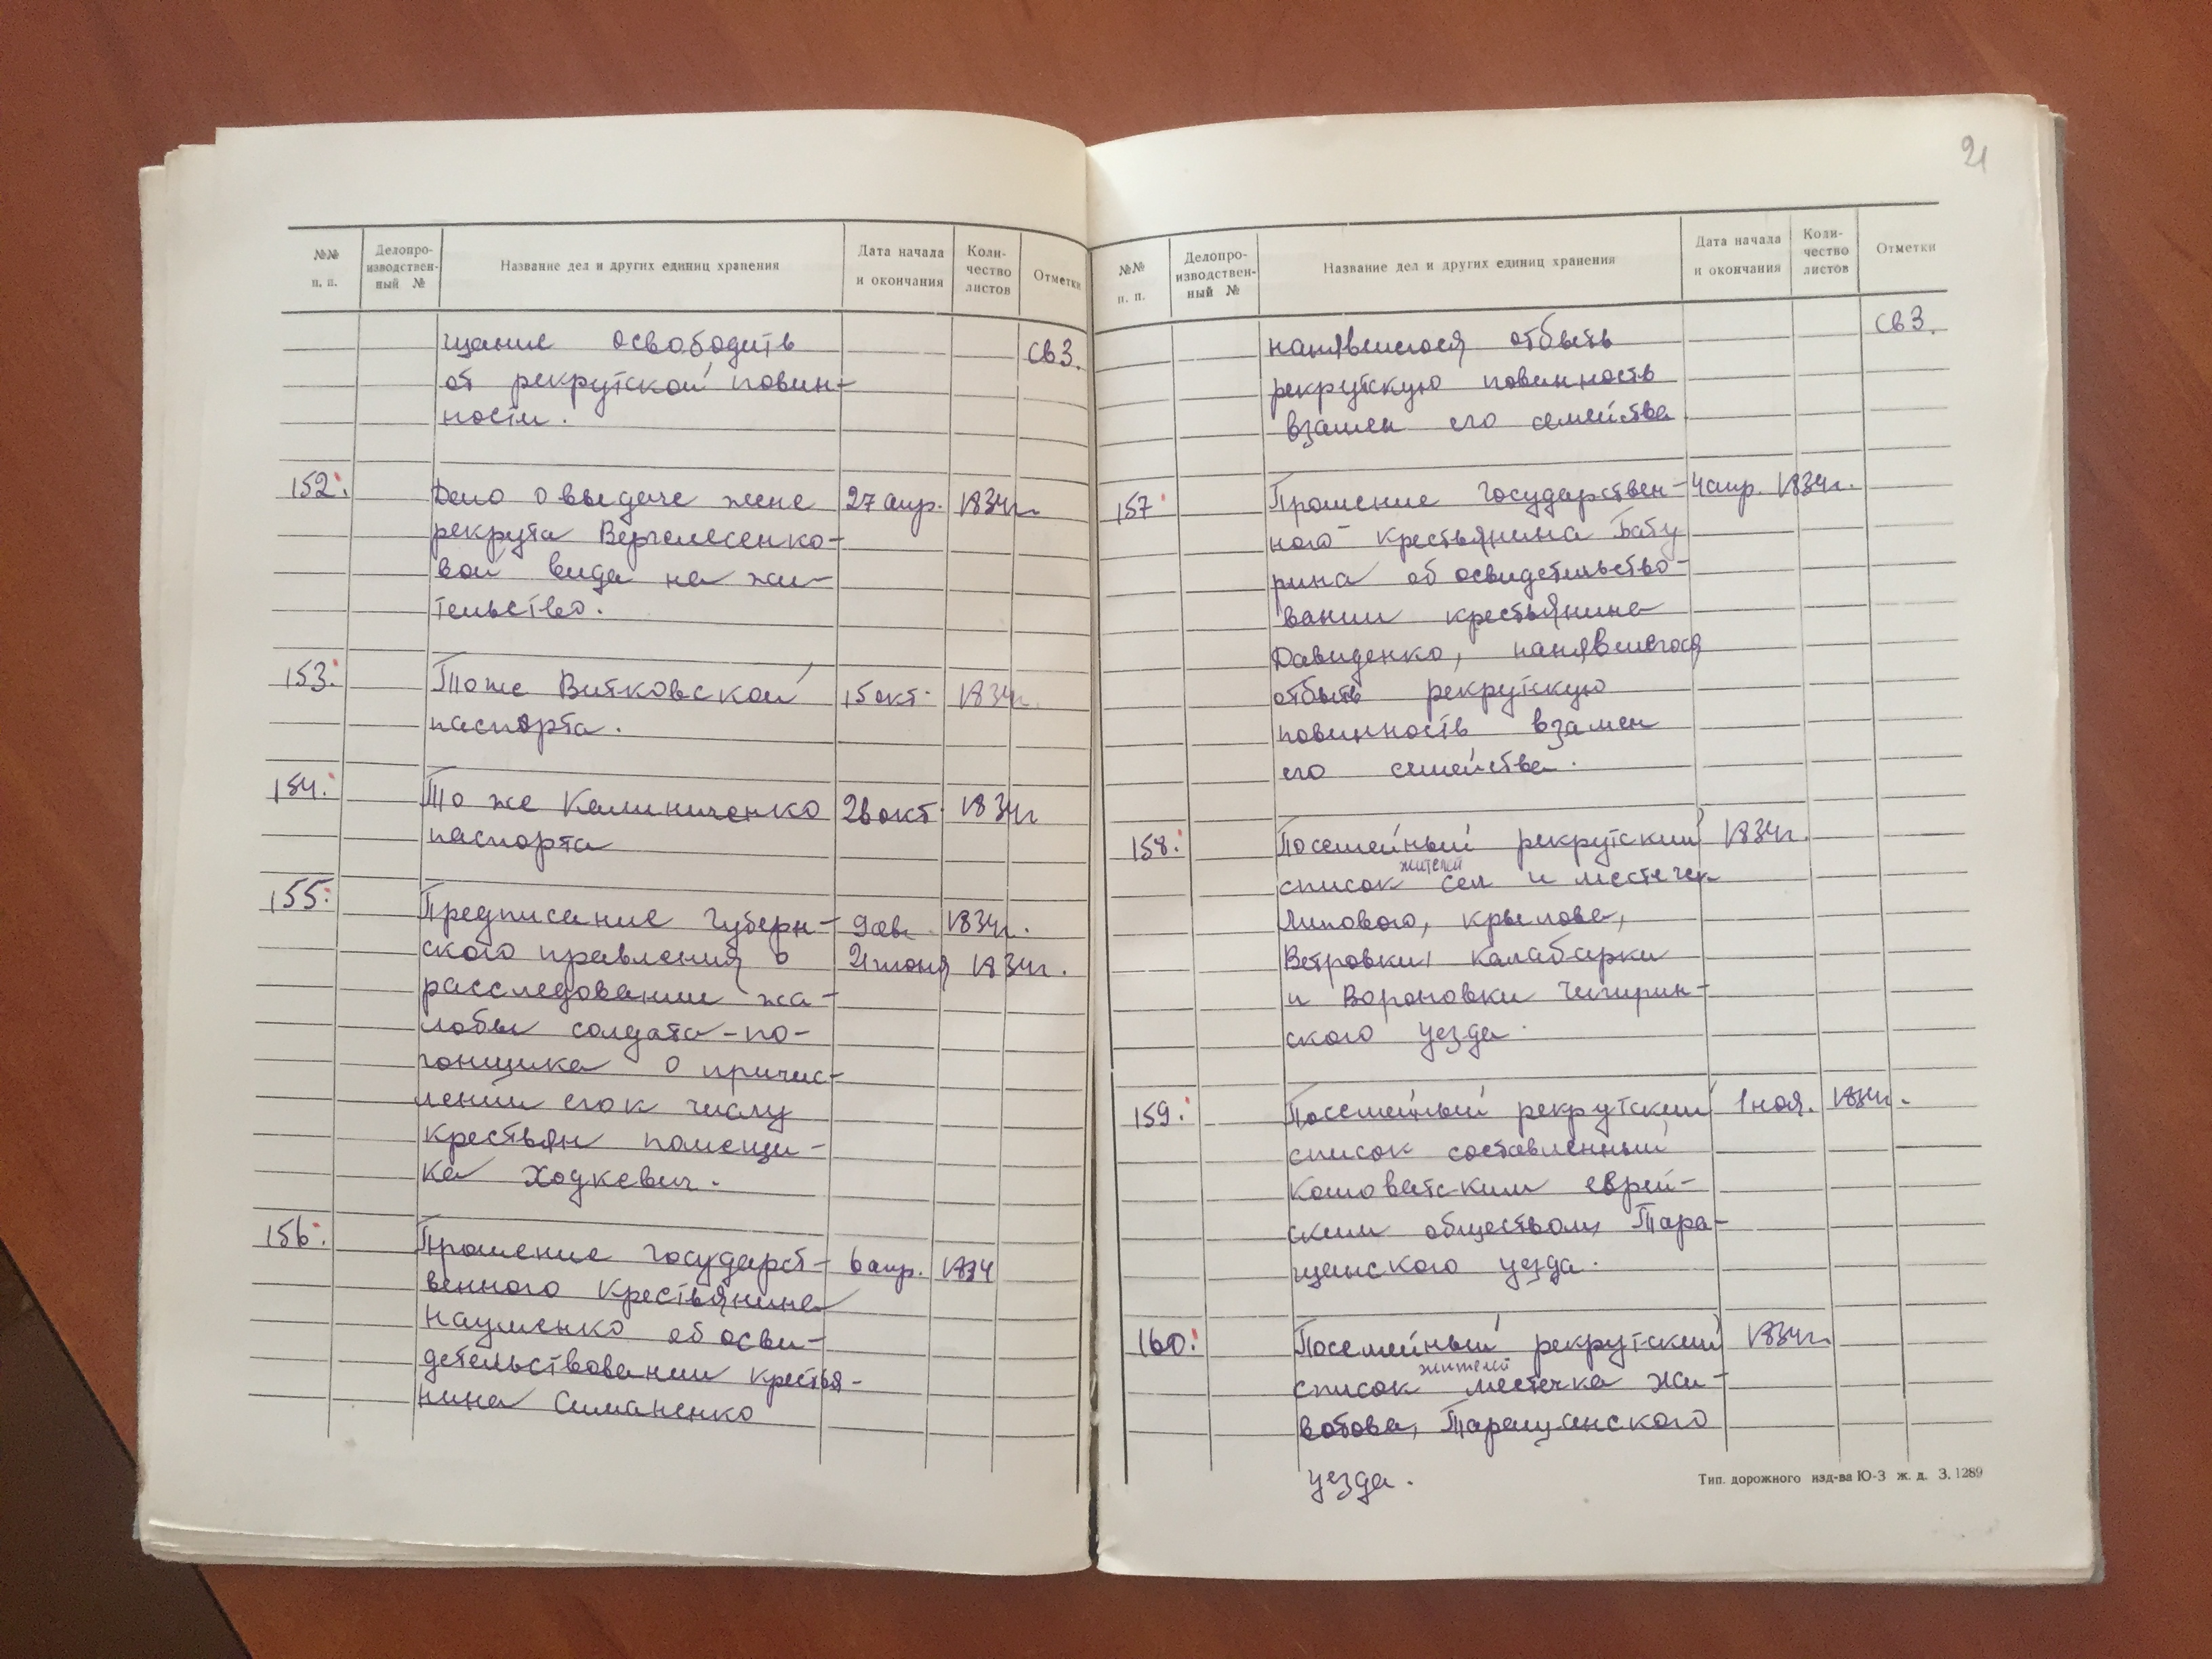 №№ п. п.
Делопро-
изводствен-
ный №
Название дел и других единиц хранения
Дата начала
и окончания
Коли-
чество
листов
Отметки
щание освободить
св 3.
от рекрутской повин-
ности.
152. Дело о выдаче жене 27 апр. 1834г.
рекрута Вергелесенко-
вой вида на жи-
тельство.
153. То же Витковской 15 окт. 1834г.
паспорта.
154. То же Калиниченко 28 окт. 1834г
паспорта
155. Предписание Губерн- 9 ав. 1834г.
ского правления о 21 июня 1834г.
расследовании жа-
лобы солдата-по-
гонщика о причис-
лении его к числу
крестьян помещи-
ка Ходкевич.
156. Прошение государст- 6 апр. 1834
венного крестьянина
Науменко об осви-
детельствовании крестья-
нина Симаненко
21
№№ п. п.
Делопро-
изводствен-
ный №
Название дел и других единиц хранения
Дата начала
и окончания
Коли-
чество
листов
Отметки
нанявшегося отбыть
св 3.
рекрутскую повинность
взамен его семейства
157 Прошение государствен- 4 апр. 1834г.
ного крестьянина Бабу
рина об освидетельство-
вании крестьянина
Давиденко, нанявшегося
отбыть рекрутскую
повинность взамен
его семейства.
158. Посемейный рекрутский 1834г.
жителей
список сел и местечек
Липового, Крылова,
Ветровки, Калабарки
и Вороновки Чигирин-
ского уезда.
159. Посемейный рекрутский 1 ноя. 1834г.
список составленный
Кошоватским еврей-
ским обществом, Тара-
щанского уезда.
160. Посемейный рекрутский 1834г.
жителей
список местечка Жи-
вотова, Таращанского
уезда.
Тип. дорожного изд-ва Ю-З ж. д. З. 1289